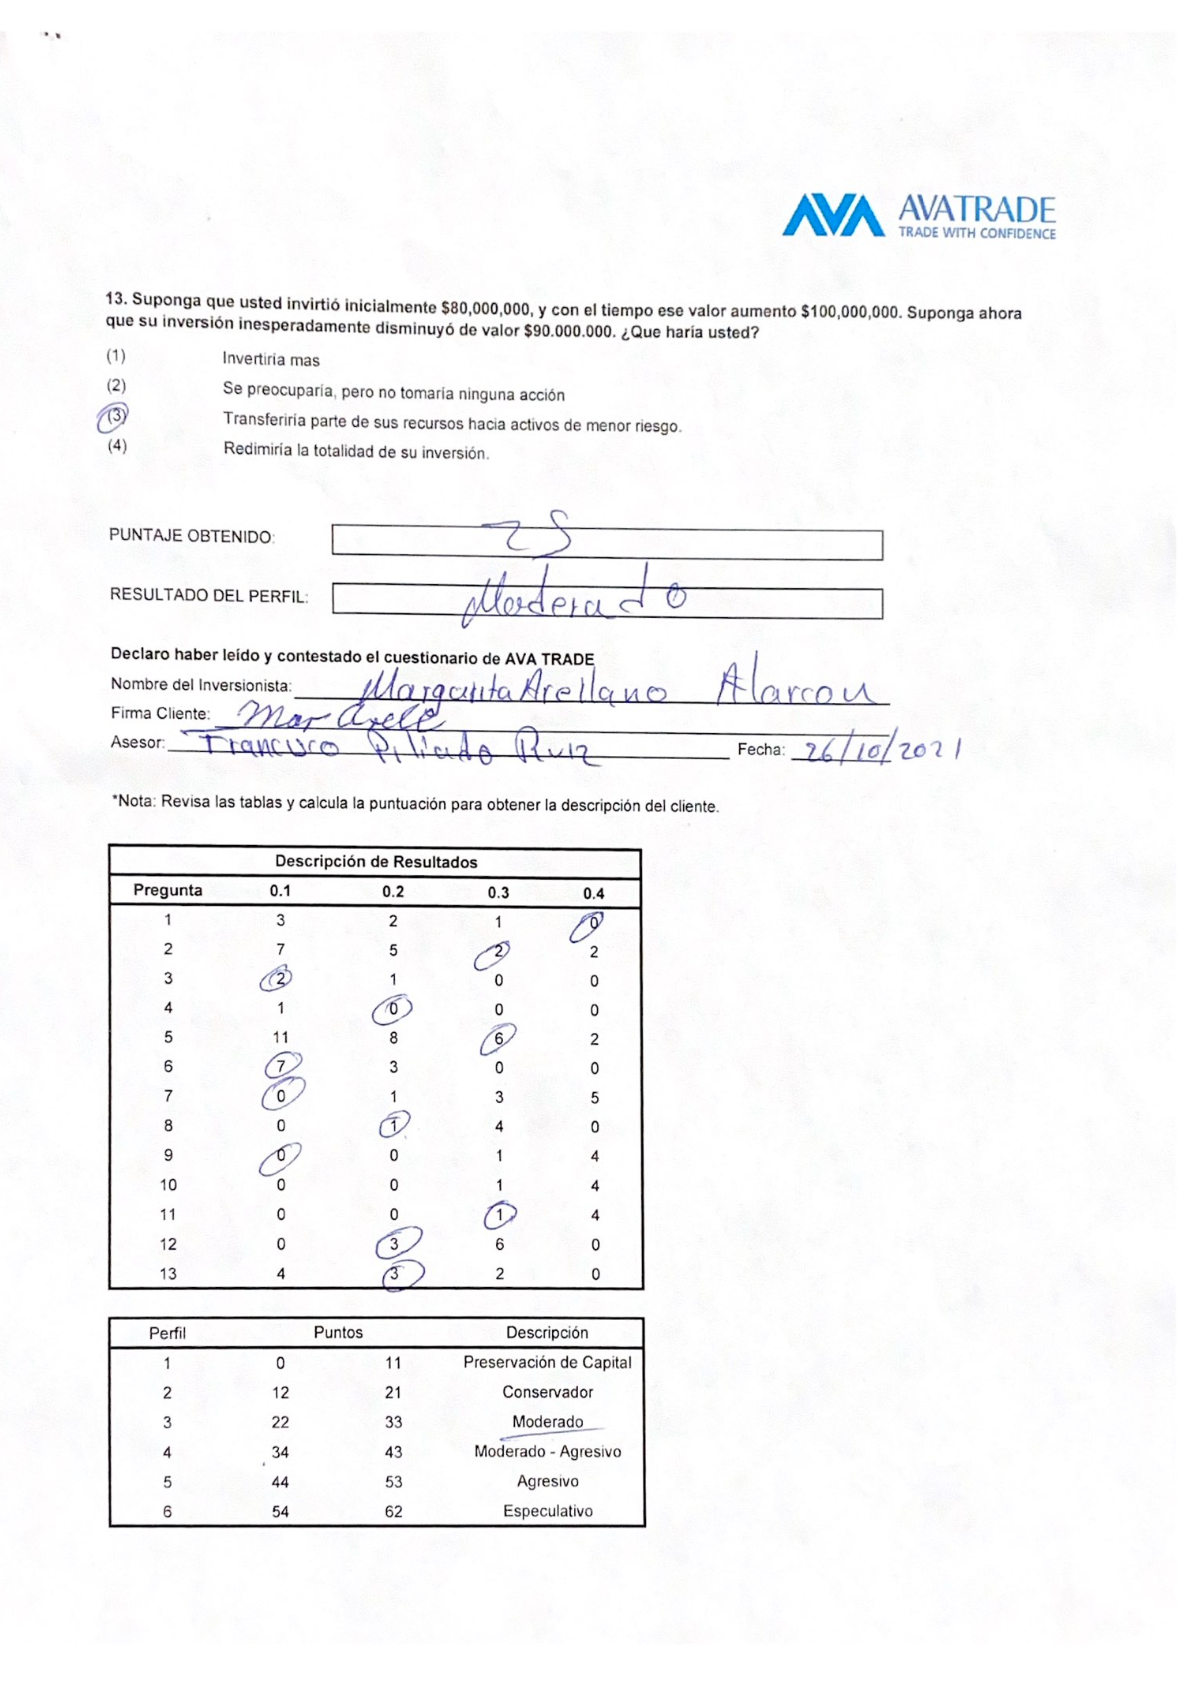 AVA AVATRADE
TRADE WITH CONFIDENCE
13. Suponga que usted invirtió inicialmente $80,000,000, y con el tiempo ese valor aumento $100,000,000. Suponga ahora
que su inversión inesperadamente disminuyó de valor $90.000.000. ¿Que haría usted?
(1) Invertiria mas
(2) Se preocuparía, pero no tomaría ninguna acción
(3) Transferiria parte de sus recursos hacia activos de menor riesgo.
(4) Redimiría la totalidad de su inversión.
PUNTAJE OBTENIDO: 25
RESULTADO DEL PERFIL: Moderado
Declaro haber leído y contestado el cuestionario de AVA TRADE
Nombre del Inversionista: Margarita Arellano Alarcon
Firma Cliente: Mar Arell
Asesor: Ruiz Fecha: 26/10/2021
*Nota: Revisa las tablas y calcula la puntuación para obtener la descripción del cliente.
Descripción de Resultados
Pregunta 0.1 0.2 0.3 0.4
1 3 2 1 0
2 7 5 2 2
3 2 1 0 0
4 1 0 0 0
5 11 8 6 2
6 7 3 0 0
7 0 1 3 5
8 0 1 4 0
9 0 0 1 4
10 0 0 1 4
11 0 0 1 4
12 0 3 6 0
13 4 3 2 0
Perfil Puntos Descripción
1 0 11 Preservación de Capital
2 12 21 Conservador
3 22 33 Moderado
4 34 43 Moderado - Agresivo
5 44 53 Agresivo
6 54 62 Especulativo